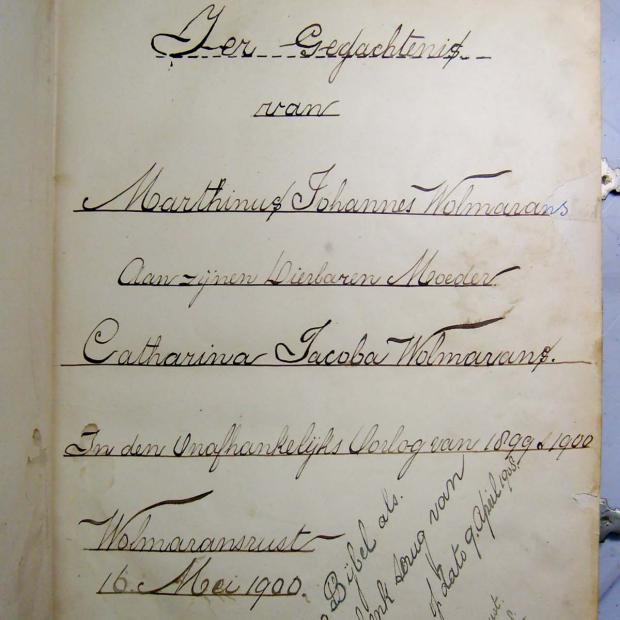 Ter Gedachtenis
van
Marthinus Johannes Wolmarans
Aan zijnen Dierbaren Moeder
Catharina Jacoba Wolmarans.
In den Onafhankelijks Oorlog van 1899 & 1900
Wolmaransrust
16. Mei 1900.
Bijbel als.
terug van
dato 9 April 1908.